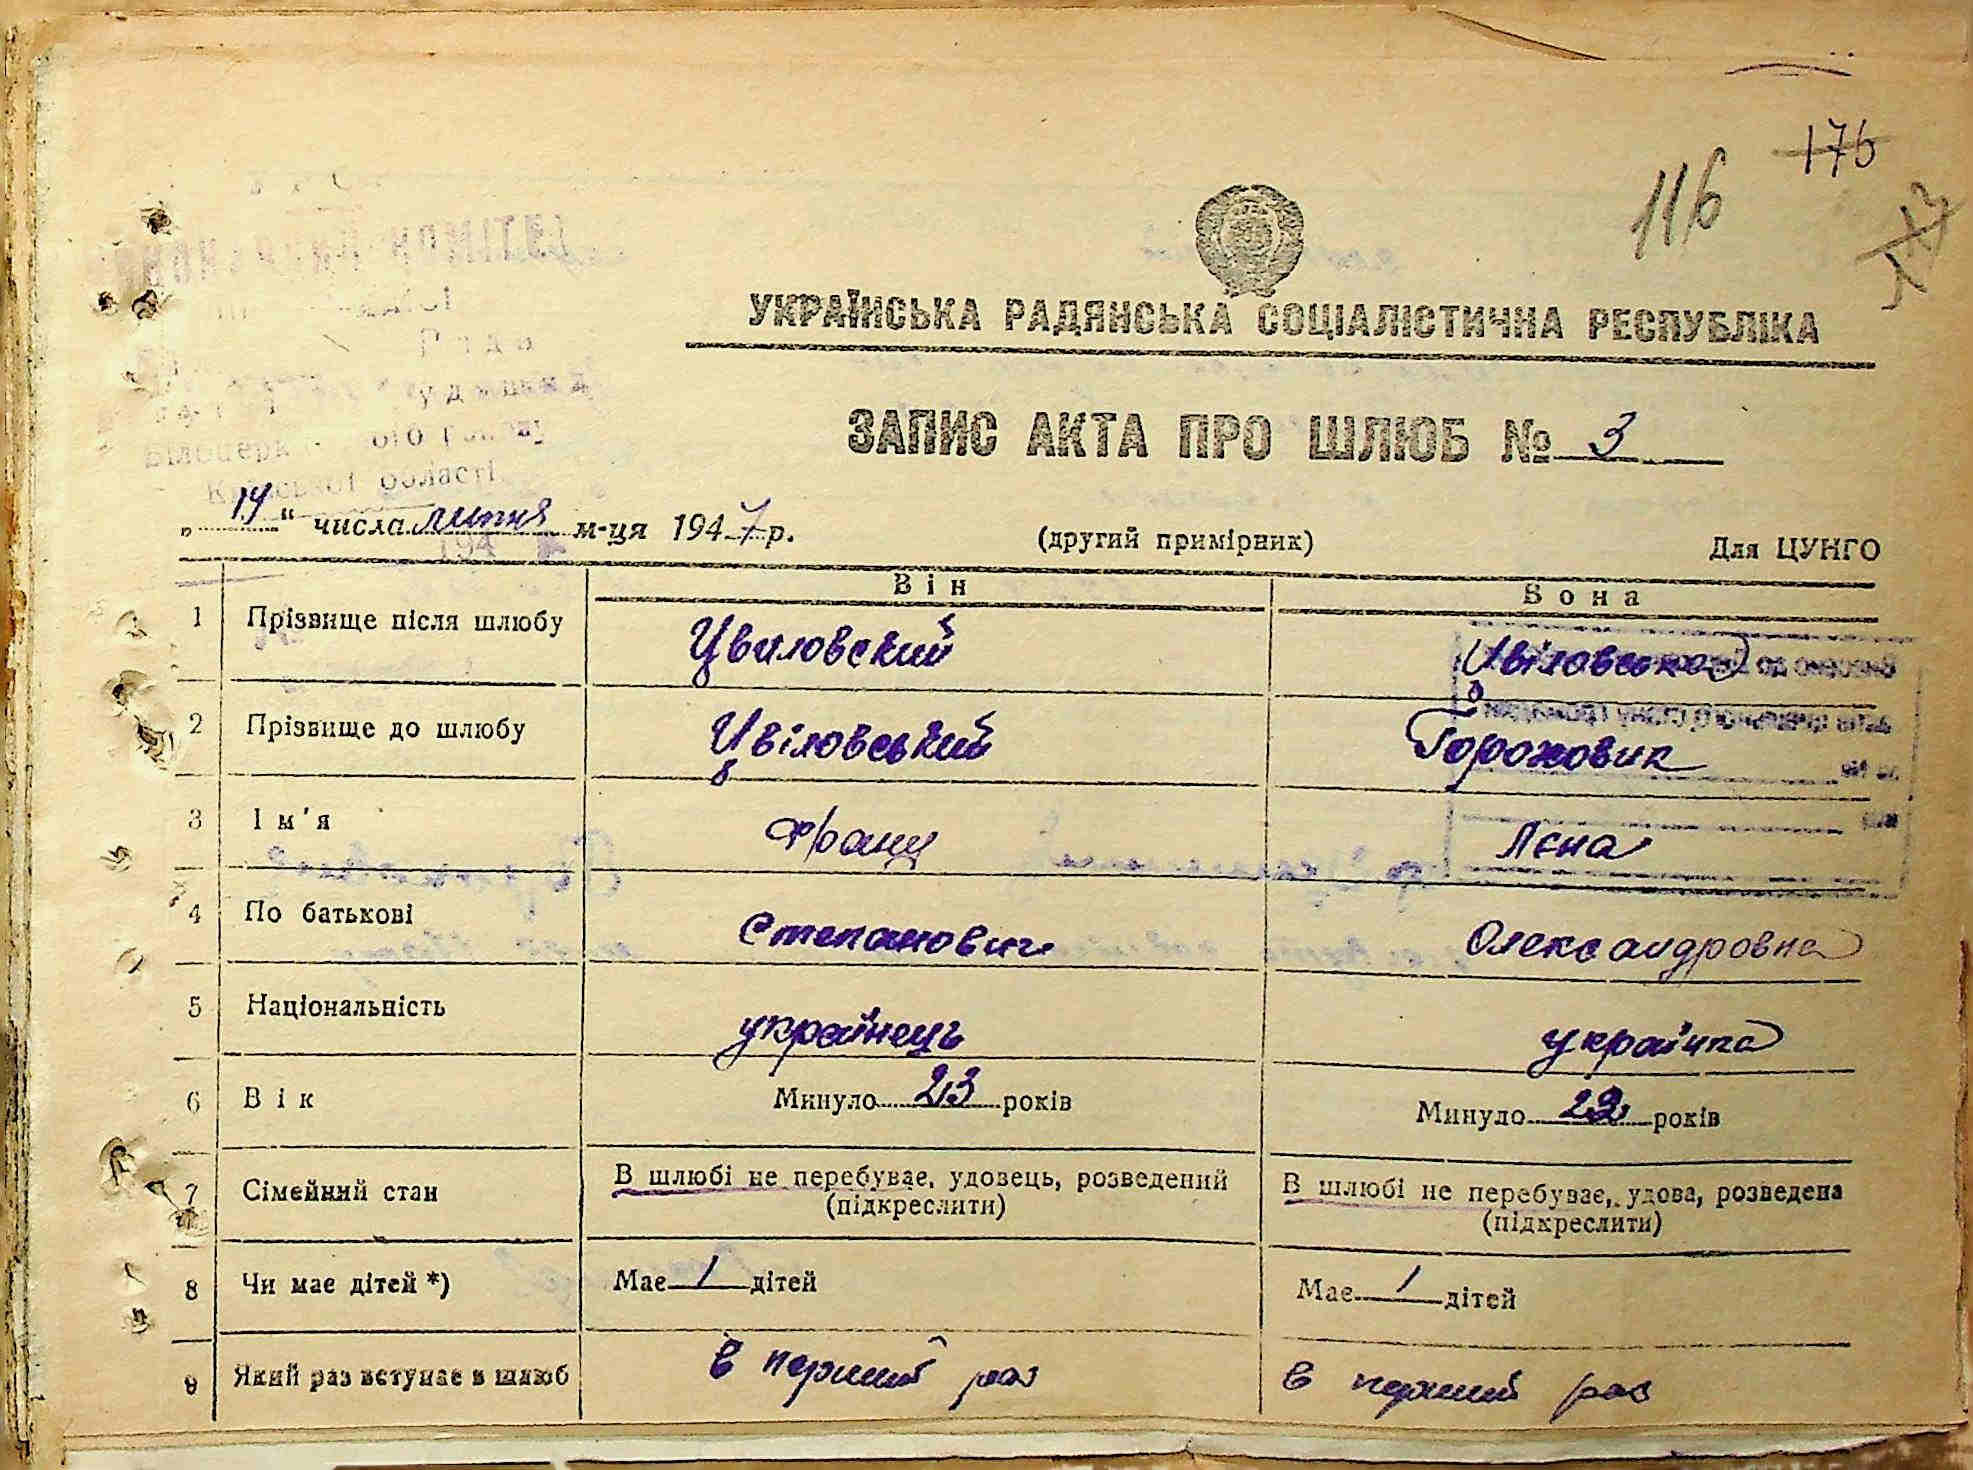 176
116
УКРАЇНСЬКА РАДЯНСЬКА СОЦІАЛІСТИЧНА РЕСПУБЛІКА
ЗАПИС АКТА ПРО ШЛЮБ № 3
області
„14“ числа липня м-ця 1947 р. (другий примірник) Для ЦУНГО
Він Вона
1 Прізвище після шлюбу Цвиловский Цвіловська
2 Прізвище до шлюбу Цвіловський Горожовик
3 Ім'я Франц Лєна
4 По батькові Степанович Олександровна
5 Національність українець українка
6 Вік Минуло 23 років Минуло 22 років
7 Сімейний стан В шлюбі не перебуває, удовець, розведений В шлюбі не перебуває, удова, розведена
(підкреслити) (підкреслити)
8 Чи має дітей *) Має 1 дітей Має 1 дітей
9 Який раз вступає в шлюб в перший раз в перший раз